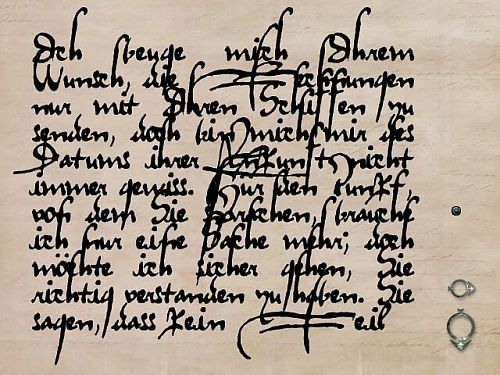 Ich beuge mich Ihrem
Wunsch, die
nur mit Ihren Schiffen zu
senden, doch bin ich mir des
Datums ihrer Ankunft nicht
immer gewiss. Für den
von dem Sie sprechen, brauche
ich nur eine Sache mehr; doch
möchte ich sicher gehen, Sie
richtig verstanden zu haben. Sie
sagen, dass kein Teil